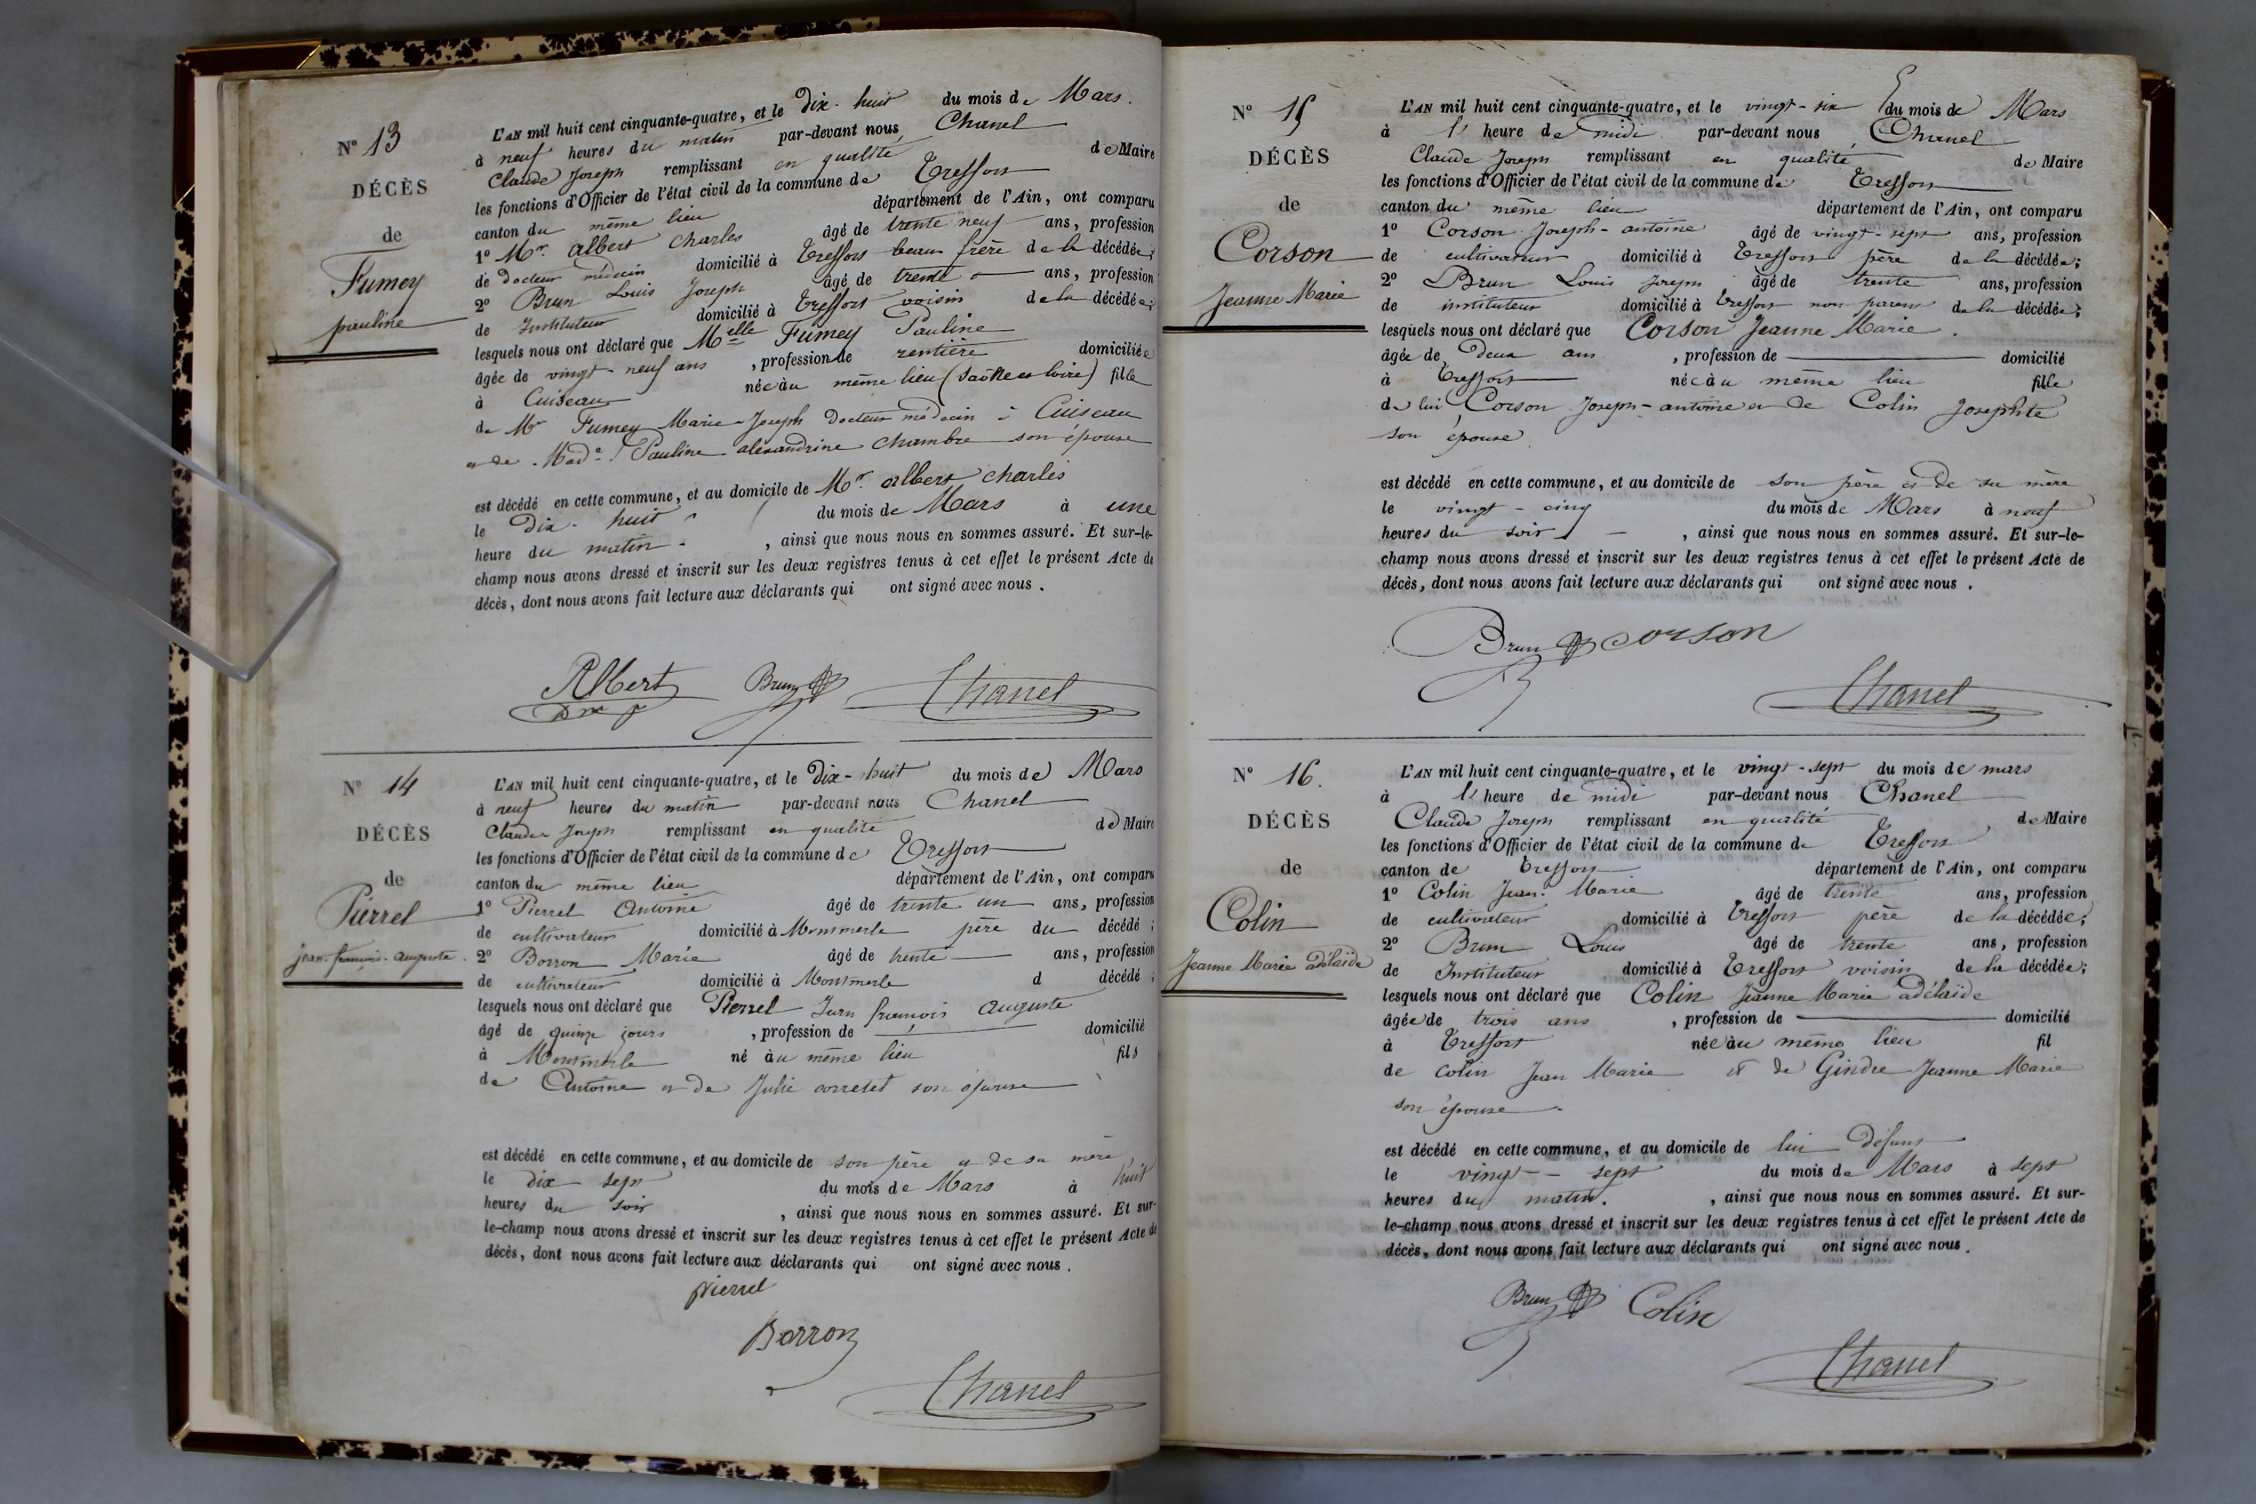 N° 13
DÉCÈS
de
Fumey
pauline
L'AN mil huit cent cinquante-quatre, et le dix-huit du mois de Mars.
à neuf heures du matin par-devant nous Chanel
Claude Joseph remplissant en qualité de Maire
les fonctions d'Officier de l'état civil de la commune de Treffort
canton du même lieu département de l'Ain, ont comparu
1° Mr. albert charles âgé de trente neuf ans, profession
de docteur médecin domicilié à Treffort beau frère de la décédée;
2° Brun Louis Joseph âgé de trente ans, profession
de Instituteur domicilié à Treffort voisin de la décédée;
lesquels nous ont déclaré que Melle Fumey Pauline
âgée de vingt-neuf ans, profession de rentière domiciliée
à Cuiseau née au même lieu (Saône et loire) fille
de Mr Fumey Marie-Joseph Docteur médecin à Cuiseau
et de Made. Pauline-alexandrine chambre son épouse
est décédé en cette commune, et au domicile de Mr. albert charles
le dix-huit du mois de Mars à une
heure du matin, ainsi que nous nous en sommes assuré. Et sur-le-
champ nous avons dressé et inscrit sur les deux registres tenus à cet effet le présent Acte de
décès, dont nous avons fait lecture aux déclarants qui ont signé avec nous.
Albert Brun Chanel
N° 14
DÉCÈS
de
Pierrel
jean-françois-auguste.
L'AN mil huit cent cinquante-quatre, et le dix-huit du mois de Mars
à neuf heures du matin par-devant nous Chanel
Claude Joseph remplissant en qualité de Maire
les fonctions d'Officier de l'état civil de la commune de Treffort
canton du même lieu département de l'Ain, ont comparu
1° Pierrel Antoine âgé de trente un ans, profession
de cultivateur domicilié à Montmerle père du décédé;
2° Borron Marie âgé de trente ans, profession
de cultivateur domicilié à Montmerle d décédé;
lesquels nous ont déclaré que Pierrel Jean françois auguste
âgé de quinze jours, profession de domicilié
à Montmerle né au même lieu fils
de Antoine et de Julie corretet son épouse
est décédé en cette commune, et au domicile de son père et de sa mère
le dix sept du mois de Mars à huit
heures du soir, ainsi que nous nous en sommes assuré. Et sur-
le-champ nous avons dressé et inscrit sur les deux registres tenus à cet effet le présent Acte de
décès, dont nous avons fait lecture aux déclarants qui ont signé avec nous.
pierrel
Borron
Chanel
N° 15
DÉCÈS
de
Corson
Jeanne Marie
L'AN mil huit cent cinquante-quatre, et le vingt-six du mois de Mars
à l' heure de midi par-devant nous Chanel
Claude Joseph remplissant en qualité de Maire
les fonctions d'Officier de l'état civil de la commune de Treffort
canton du même lieu département de l'Ain, ont comparu
1° Corson Joseph-antoine âgé de vingt-sept ans, profession
de cultivateur domicilié à Treffort père de la décédée;
2° Brun Louis Joseph âgé de trente ans, profession
de instituteur domicilié à Treffort non parent de la décédée;
lesquels nous ont déclaré que Corson Jeanne Marie.
âgée de Deux ans, profession de domicilié
à Treffort née au même lieu fille
de lui Corson Joseph-antoine et de Colin Josephte
son épouse
est décédé en cette commune, et au domicile de son père et de sa mère
le vingt-cinq du mois de Mars à neuf
heures du soir, ainsi que nous nous en sommes assuré. Et sur-le-
champ nous avons dressé et inscrit sur les deux registres tenus à cet effet le présent Acte de
décès, dont nous avons fait lecture aux déclarants qui ont signé avec nous.
Brun corson
Chanel
N° 16.
DÉCÈS
de
Colin
Jeanne Marie adélaïde
L'AN mil huit cent cinquante-quatre, et le vingt-sept du mois de mars
à l' heure de midi par-devant nous Chanel
Claude Joseph remplissant en qualité de Maire
les fonctions d'Officier de l'état civil de la commune de Treffort
canton de Treffort département de l'Ain, ont comparu
1° Colin Jean-Marie âgé de trente ans, profession
de cultivateur domicilié à Treffort père de la décédée;
2° Brun Louis âgé de trente ans, profession
de Instituteur domicilié à Treffort voisin de la décédée;
lesquels nous ont déclaré que Colin Jeanne Marie adélaïde
âgée de trois ans, profession de domicilié
à Treffort née au même lieu fil
de colin Jean Marie et de Gindre Jeanne Marie
son épouse.
est décédé en cette commune, et au domicile de lui défunt
le vingt-sept du mois de Mars à sept
heures du matin., ainsi que nous nous en sommes assuré. Et sur-
le-champ nous avons dressé et inscrit sur les deux registres tenus à cet effet le présent Acte de
décès, dont nous avons fait lecture aux déclarants qui ont signé avec nous.
Brun Colin
Chanel